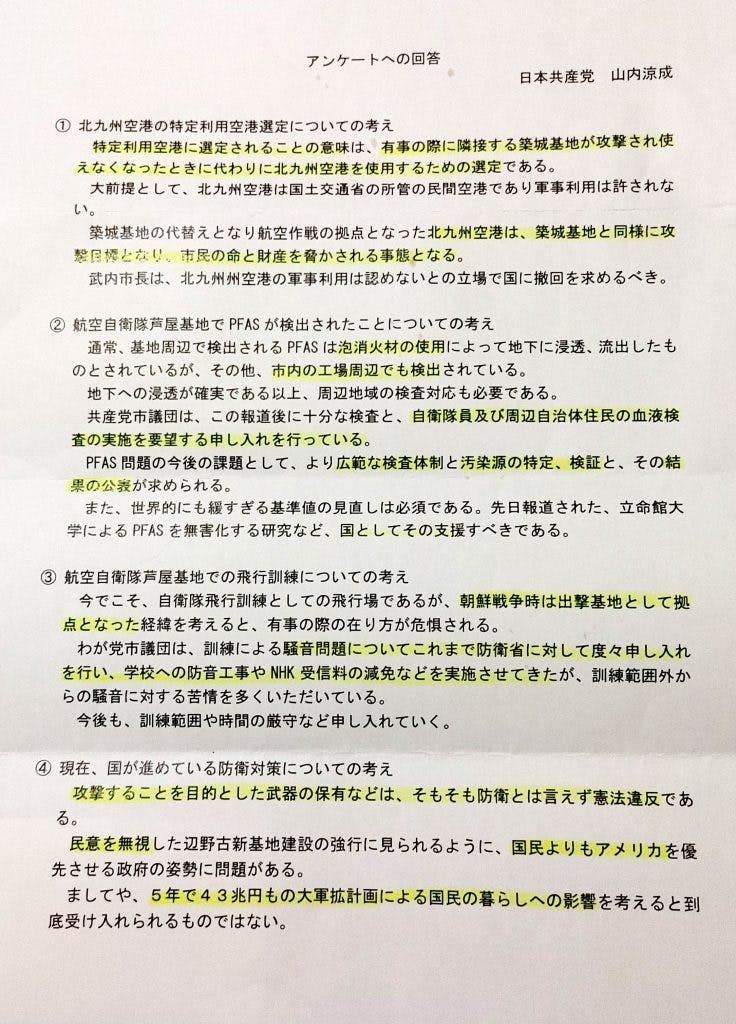 アンケートへの回答
日本共産党 山内涼成
① 北九州空港の特定利用空港選定についての考え
特定利用空港に選定されることの意味は、有事の際に隣接する築城基地が攻撃され使
えなくなったときに代わりに北九州空港を使用するための選定である。
大前提として、北九州空港は国土交通省の所管の民間空港であり軍事利用は許されな
い。
築城基地の代替えとなり航空作戦の拠点となった北九州空港は、築城基地と同様に攻
撃目標となり、市民の命と財産を脅かされる事態となる。
武内市長は、北九州州空港の軍事利用は認めないとの立場で国に撤回を求めるべき。
② 航空自衛隊芦屋基地でPFASが検出されたことについての考え
通常、基地周辺で検出されるPFASは泡消火材の使用によって地下に浸透、流出したも
のとされているが、その他、市内の工場周辺でも検出されている。
地下への浸透が確実である以上、周辺地域の検査対応も必要である。
共産党市議団は、この報道後に十分な検査と、自衛隊員及び周辺自治体住民の血液検
査の実施を要望する申し入れを行っている。
PFAS問題の今後の課題として、より広範な検査体制と汚染源の特定、検証と、その結
果の公表が求められる。
また、世界的にも緩すぎる基準値の見直しは必須である。先日報道された、立命館大
学によるPFASを無害化する研究など、国としてその支援すべきである。
③ 航空自衛隊芦屋基地での飛行訓練についての考え
今でこそ、自衛隊飛行訓練としての飛行場であるが、朝鮮戦争時は出撃基地として拠
点となった経緯を考えると、有事の際の在り方が危惧される。
わが党市議団は、訓練による騒音問題についてこれまで防衛省に対して度々申し入れ
を行い、学校への防音工事やNHK受信料の減免などを実施させてきたが、訓練範囲外か
らの騒音に対する苦情を多くいただいている。
今後も、訓練範囲や時間の厳守など申し入れていく。
④ 現在、国が進めている防衛対策についての考え
攻撃することを目的とした武器の保有などは、そもそも防衛とは言えず憲法違反であ
る。
民意を無視した辺野古新基地建設の強行に見られるように、国民よりもアメリカを優
先させる政府の姿勢に問題がある。
ましてや、5年で43兆円もの大軍拡計画による国民の暮らしへの影響を考えると到
底受け入れられるものではない。